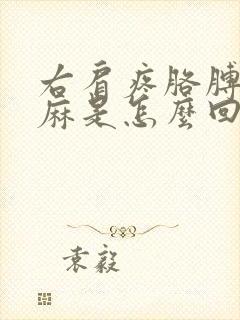 右肩疼胳膊
麻是怎麼回
袁毅